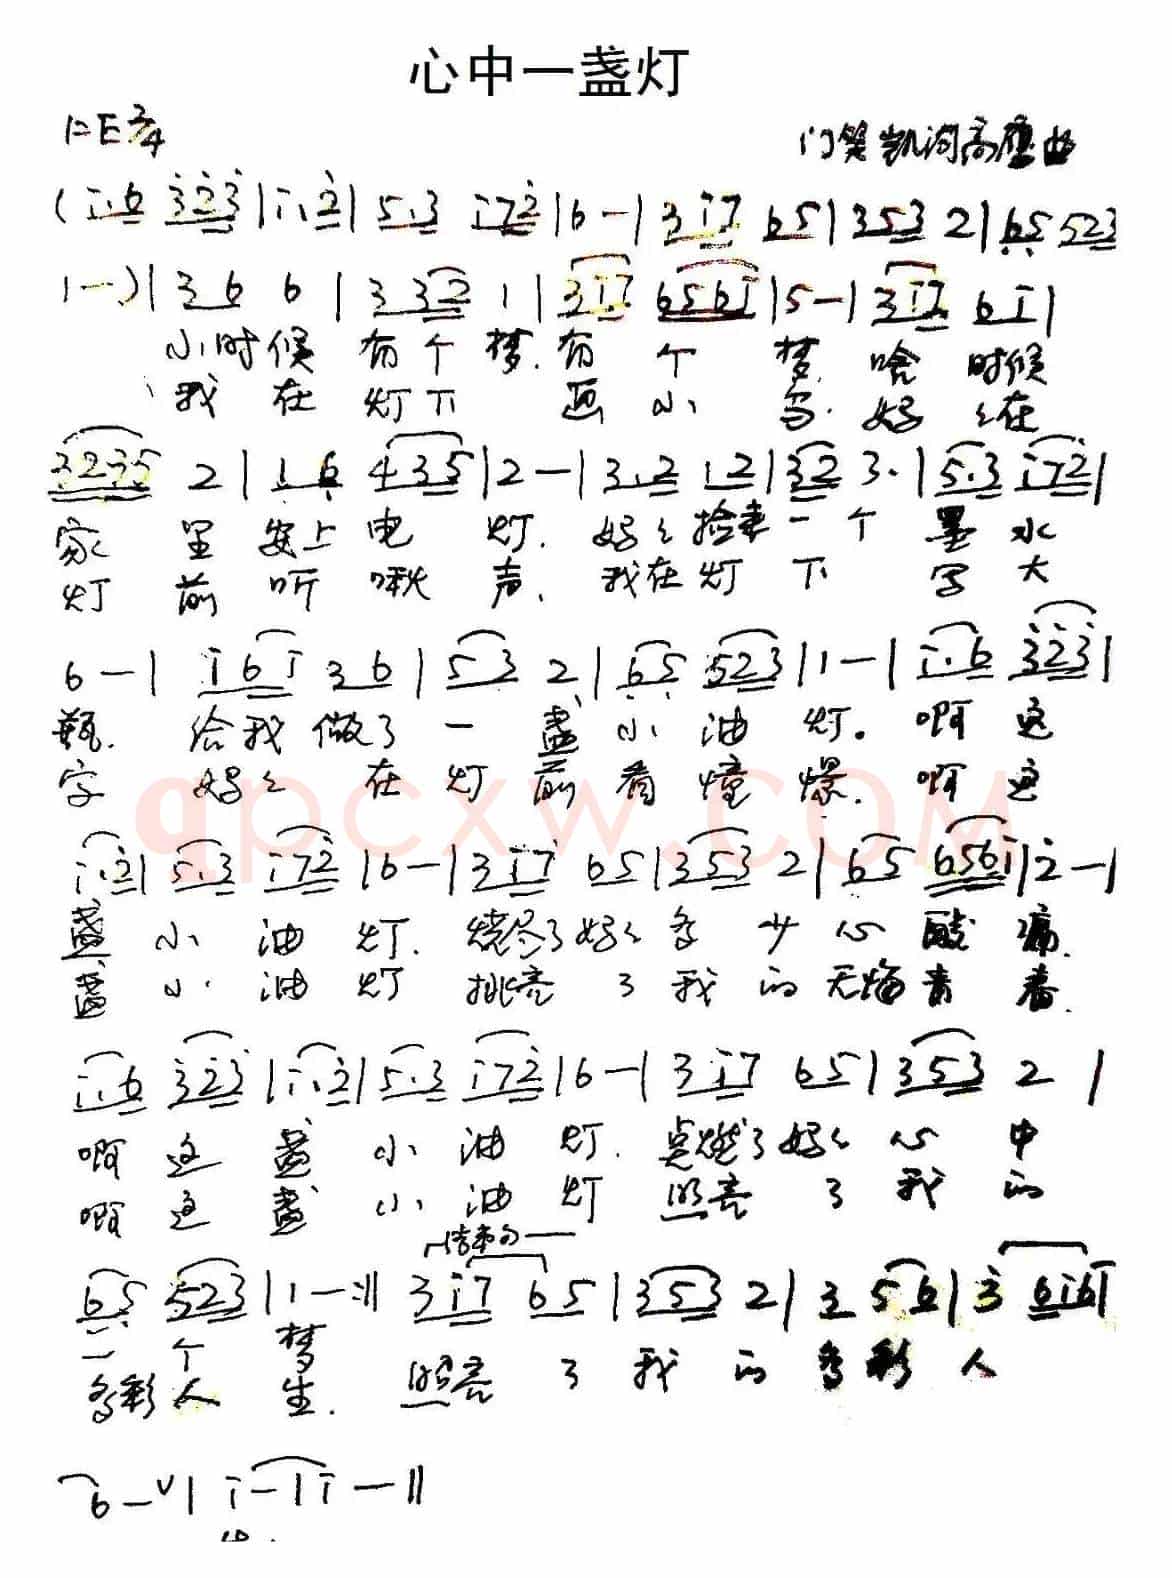 心中一盏灯
1=E 2/4
门笑凯词 高 曲
(i.6 323|i.2|5.3 i72|6-|3i7 65|353 2|65 523
1-)|366|332 1|3i7 656i|5-|3i7 6i|
小时候 有个梦.有个梦.啥时候
我在灯下画小鸟.妈妈在
3235 2|16 435|2-|3.2 12|32 3.|5.3 i72|
家里安上电灯.妈妈捡来一个墨水
灯前听 声.我在灯下写大
6-|i6i 36|53 2|65 523|1-|i.6 323|
瓶.给我做了一盏小油灯。啊这
字 妈妈在灯前看憧憬.啊这
i.2|5.3 i72|6-|3i7 65|353 2|65 656i|2-|
盏小油灯.烧尽了妈妈多少心酸痛.
盏小油灯 挑亮了我的无悔青春.
i.6 323|i.2|5.3 i72|6-|3i7 65|353 2|
啊这盏小油灯.点燃了妈妈心中
啊这盏小油灯 照亮了我的
结束句
65 523|1-:‖ 3i7 65|353 2|3 56|3 6i6|
一个梦
多彩人生. 照亮了我的多彩人
6-∨|i-|i-‖
qpcxw.com